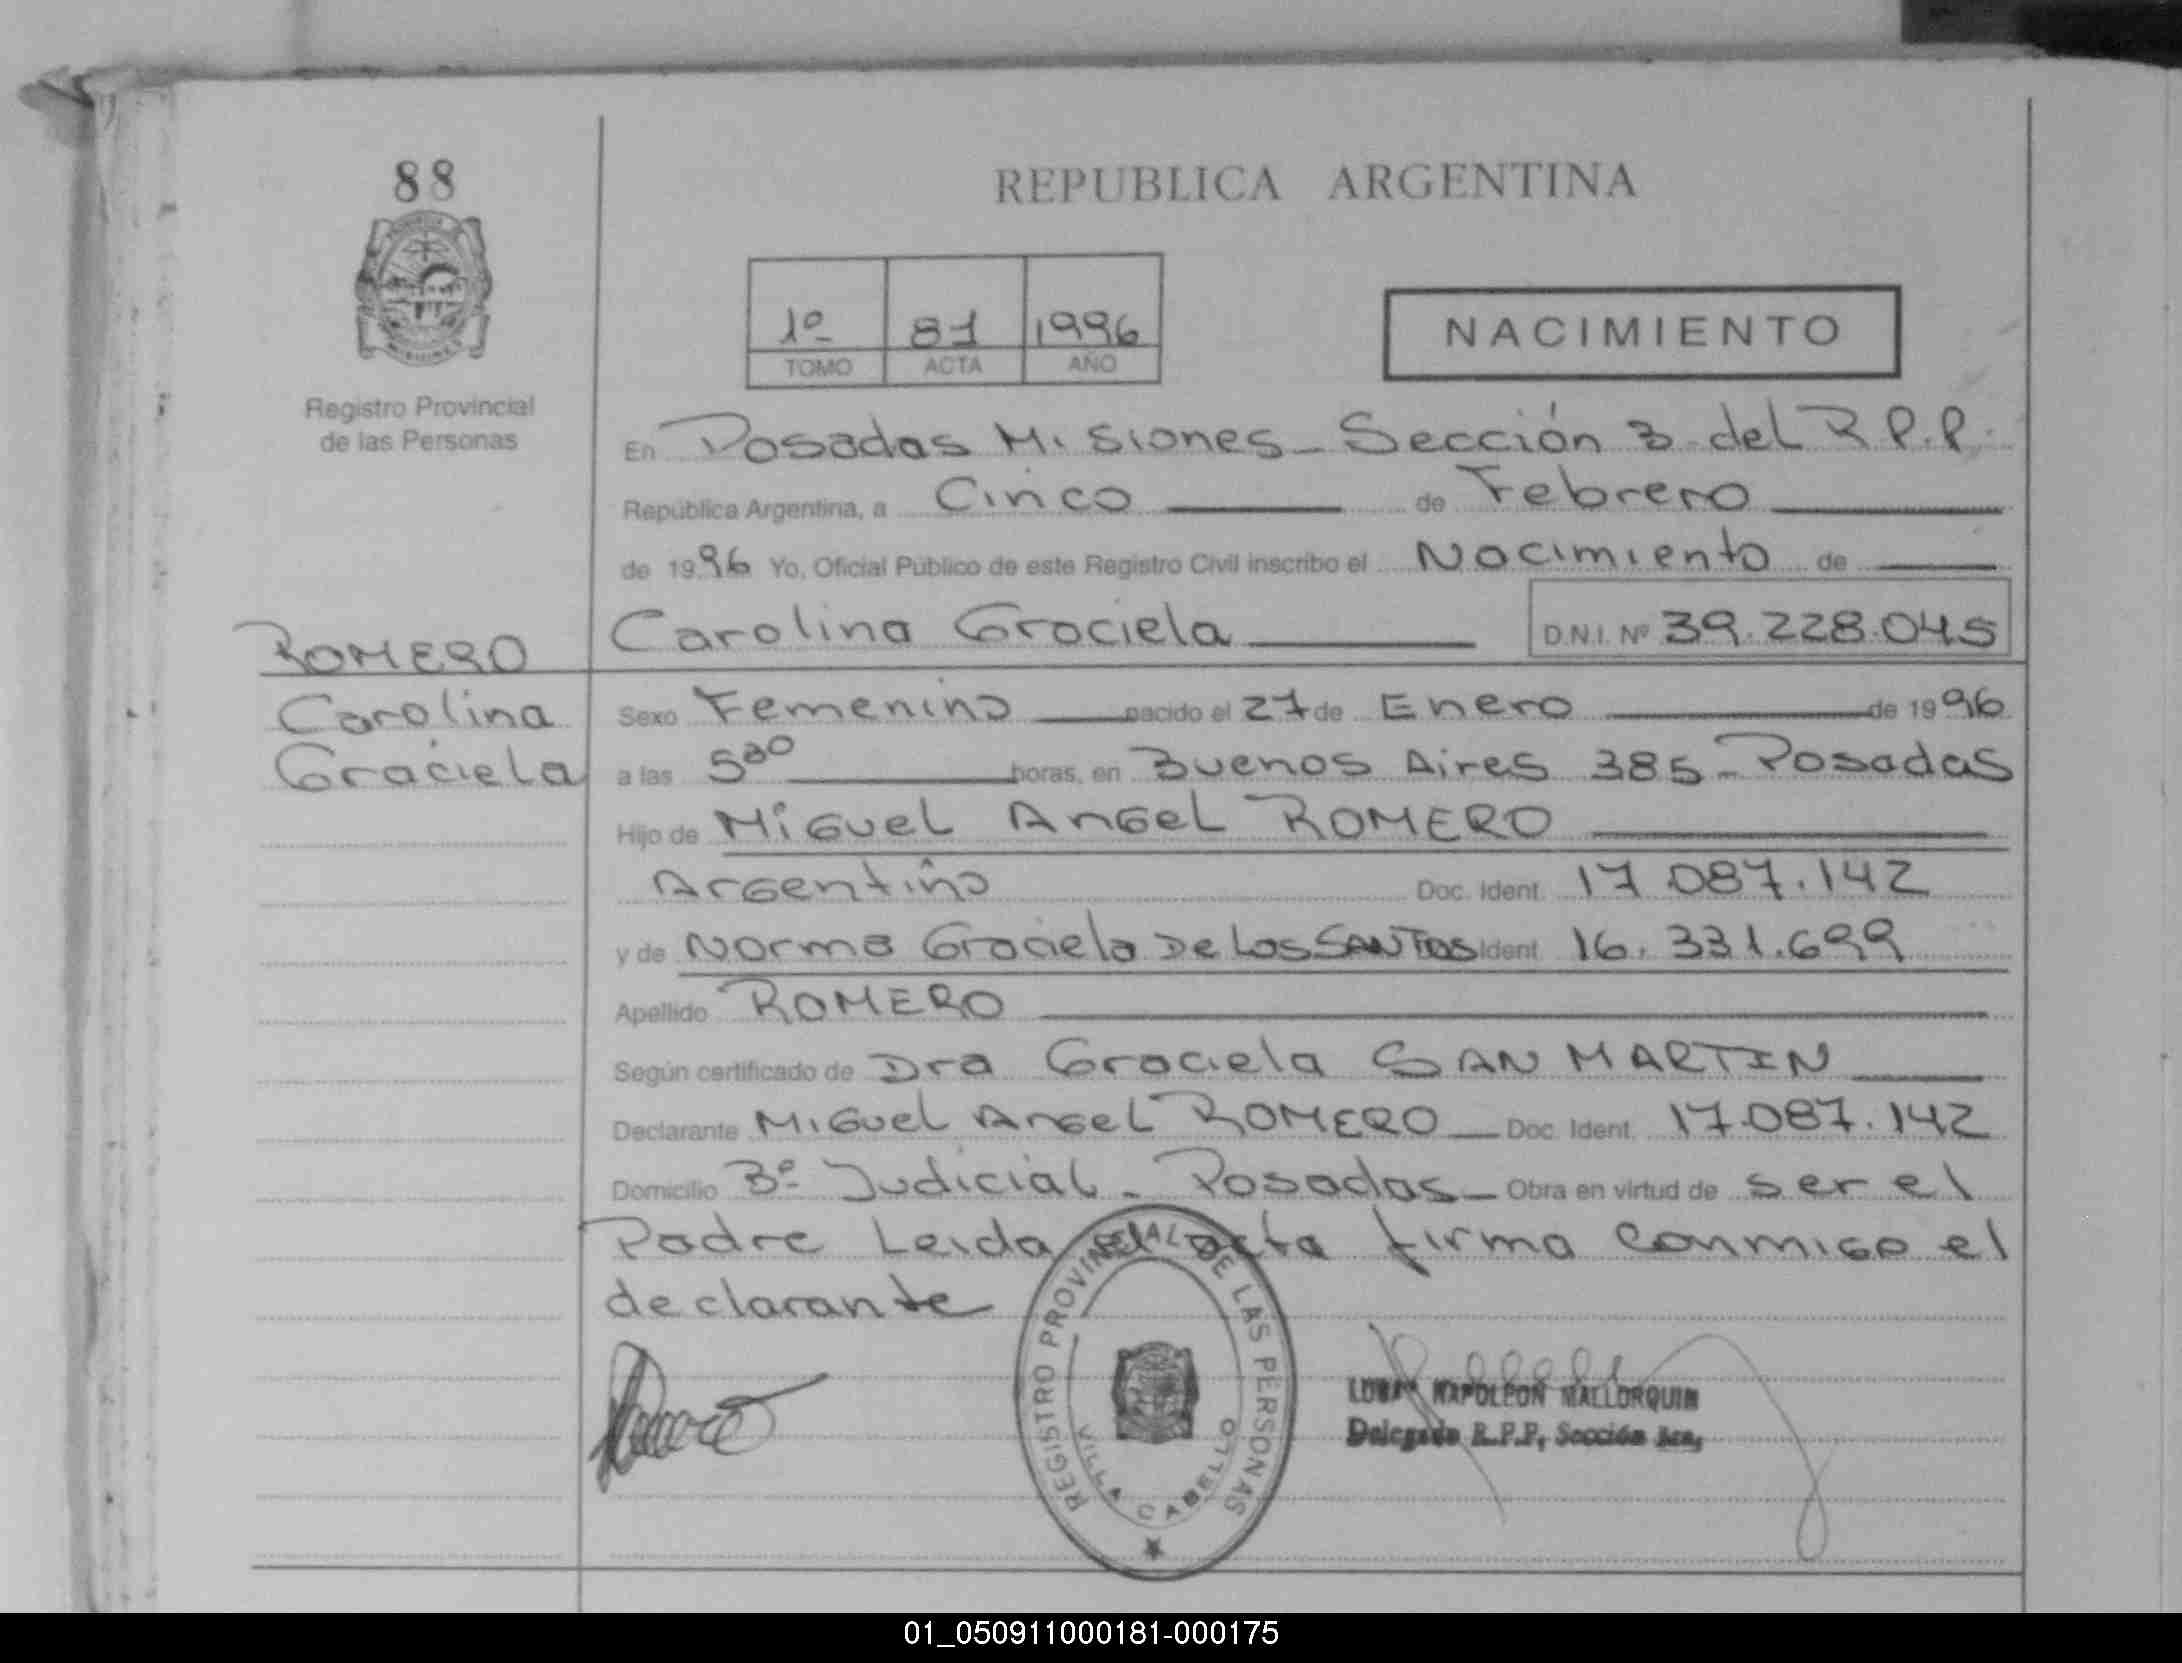 88
REPUBLICA ARGENTINA
1º 81 1996
TOMO ACTA AÑO
NACIMIENTO
Registro Provincial
de las Personas
En Posadas Misiones - Sección 3 del R.P.P.
República Argentina, a Cinco de Febrero
de 1996 Yo, Oficial Público de este Registro Civil inscribo el Nacimiento de
Carolina Graciela D.N.I. Nº 39.228.045
ROMERO
Carolina
Graciela
Sexo Femenino nacido el 27 de Enero de 1996
a las 5:30 horas, en Buenos Aires 385 - Posadas
Hijo de Miguel Angel ROMERO
Argentino Doc. Ident. 17.087.142
y de Norma Graciela De Los SANTOS Ident. 16.331.699
Apellido ROMERO
Según certificado de Dra Graciela SAN MARTIN
Declarante Miguel Angel ROMERO Doc. Ident. 17.087.142
Domicilio Bº Judicial - Posadas - Obra en virtud de ser el
Padre Leida el acta firma conmigo el
declarante
REGISTRO PROVINCIAL DE LAS PERSONAS
VILLA CABELLO
NAPOLEON MALLORQUIN
Delegado R.P.P. Sección
01_050911000181-000175